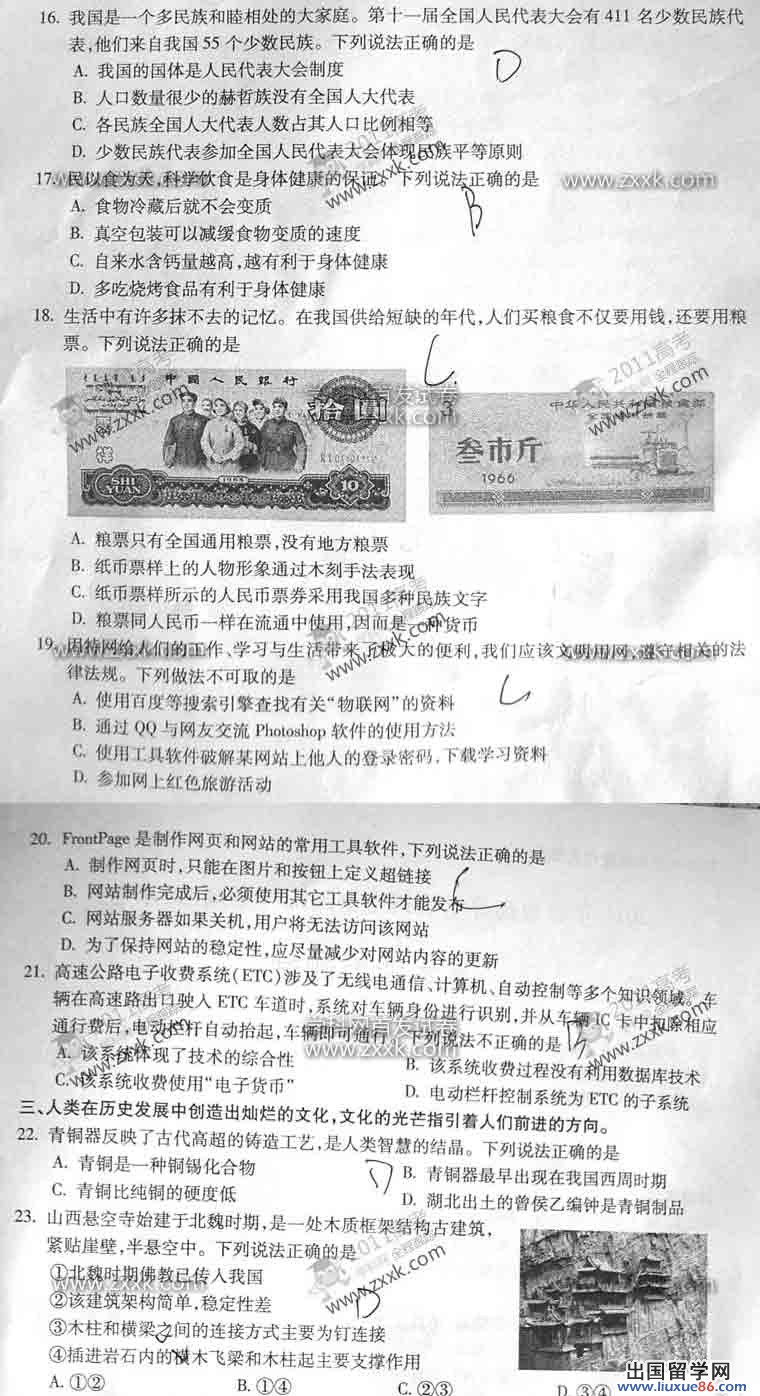 16. 我国是一个多民族和睦相处的大家庭。第十一届全国人民代表大会有 411 名少数民族代
表,他们来自我国 55 个少数民族。下列说法正确的是
D
A. 我国的国体是人民代表大会制度
B. 人口数量很少的赫哲族没有全国人大代表
C. 各民族全国人大代表人数占其人口比例相等
D. 少数民族代表参加全国人民代表大会体现民族平等原则
17. 民以食为天,科学饮食是身体健康的保证。下列说法正确的是
www.zxxk.com
B
A. 食物冷藏后就不会变质
B. 真空包装可以减缓食物变质的速度
C. 自来水含钙量越高,越有利于身体健康
D. 多吃烧烤食品有利于身体健康
18. 生活中有许多抹不去的记忆。在我国供给短缺的年代,人们买粮食不仅要用钱,还要用粮
票。下列说法正确的是
C
2011高考
www.zxxk.com
中国人民银行
拾圆
SHI YUAN
1965
10
叁市斤
1966
A. 粮票只有全国通用粮票,没有地方粮票
B. 纸币票样上的人物形象通过木刻手法表现
C. 纸币票样所示的人民币票券采用我国多种民族文字
D. 粮票同人民币一样在流通中使用,因而是一种货币
19. 因特网给人们的工作、学习与生活带来了极大的便利,我们应该文明用网,遵守相关的法
律法规。下列做法不可取的是
C
A. 使用百度等搜索引擎查找有关“物联网”的资料
B. 通过 QQ 与网友交流 Photoshop 软件的使用方法
C. 使用工具软件破解某网站上他人的登录密码,下载学习资料
D. 参加网上红色旅游活动
20. FrontPage 是制作网页和网站的常用工具软件,下列说法正确的是
C
A. 制作网页时,只能在图片和按钮上定义超链接
B. 网站制作完成后,必须使用其它工具软件才能发布
C. 网站服务器如果关机,用户将无法访问该网站
D. 为了保持网站的稳定性,应尽量减少对网站内容的更新
21. 高速公路电子收费系统(ETC)涉及了无线电通信、计算机、自动控制等多个知识领域。车
辆在高速路出口驶入 ETC 车道时,系统对车辆身份进行识别,并从车辆 IC 卡中扣除相应
通行费后,电动栏杆自动抬起,车辆即可通行。下列说法不正确的是
B
A. 该系统体现了技术的综合性
B. 该系统收费过程没有利用数据库技术
C. 该系统收费使用“电子货币”
D. 电动栏杆控制系统为 ETC 的子系统
三、人类在历史发展中创造出灿烂的文化,文化的光芒指引着人们前进的方向。
22. 青铜器反映了古代高超的铸造工艺,是人类智慧的结晶。下列说法正确的是
D
A. 青铜是一种铜锡化合物
B. 青铜器最早出现在我国西周时期
C. 青铜比纯铜的硬度低
D. 湖北出土的曾侯乙编钟是青铜制品
23. 山西悬空寺始建于北魏时期,是一处木质框架结构古建筑,
紧贴崖壁,半悬空中。下列说法正确的是
①北魏时期佛教已传入我国
②该建筑架构简单,稳定性差
B
③木柱和横梁之间的连接方式主要为钉连接
④插进岩石内的横木飞梁和木柱起主要支撑作用
A. ①②
B. ①④
C. ②③
D. ③④
出国留学网
www.liuxue86.com